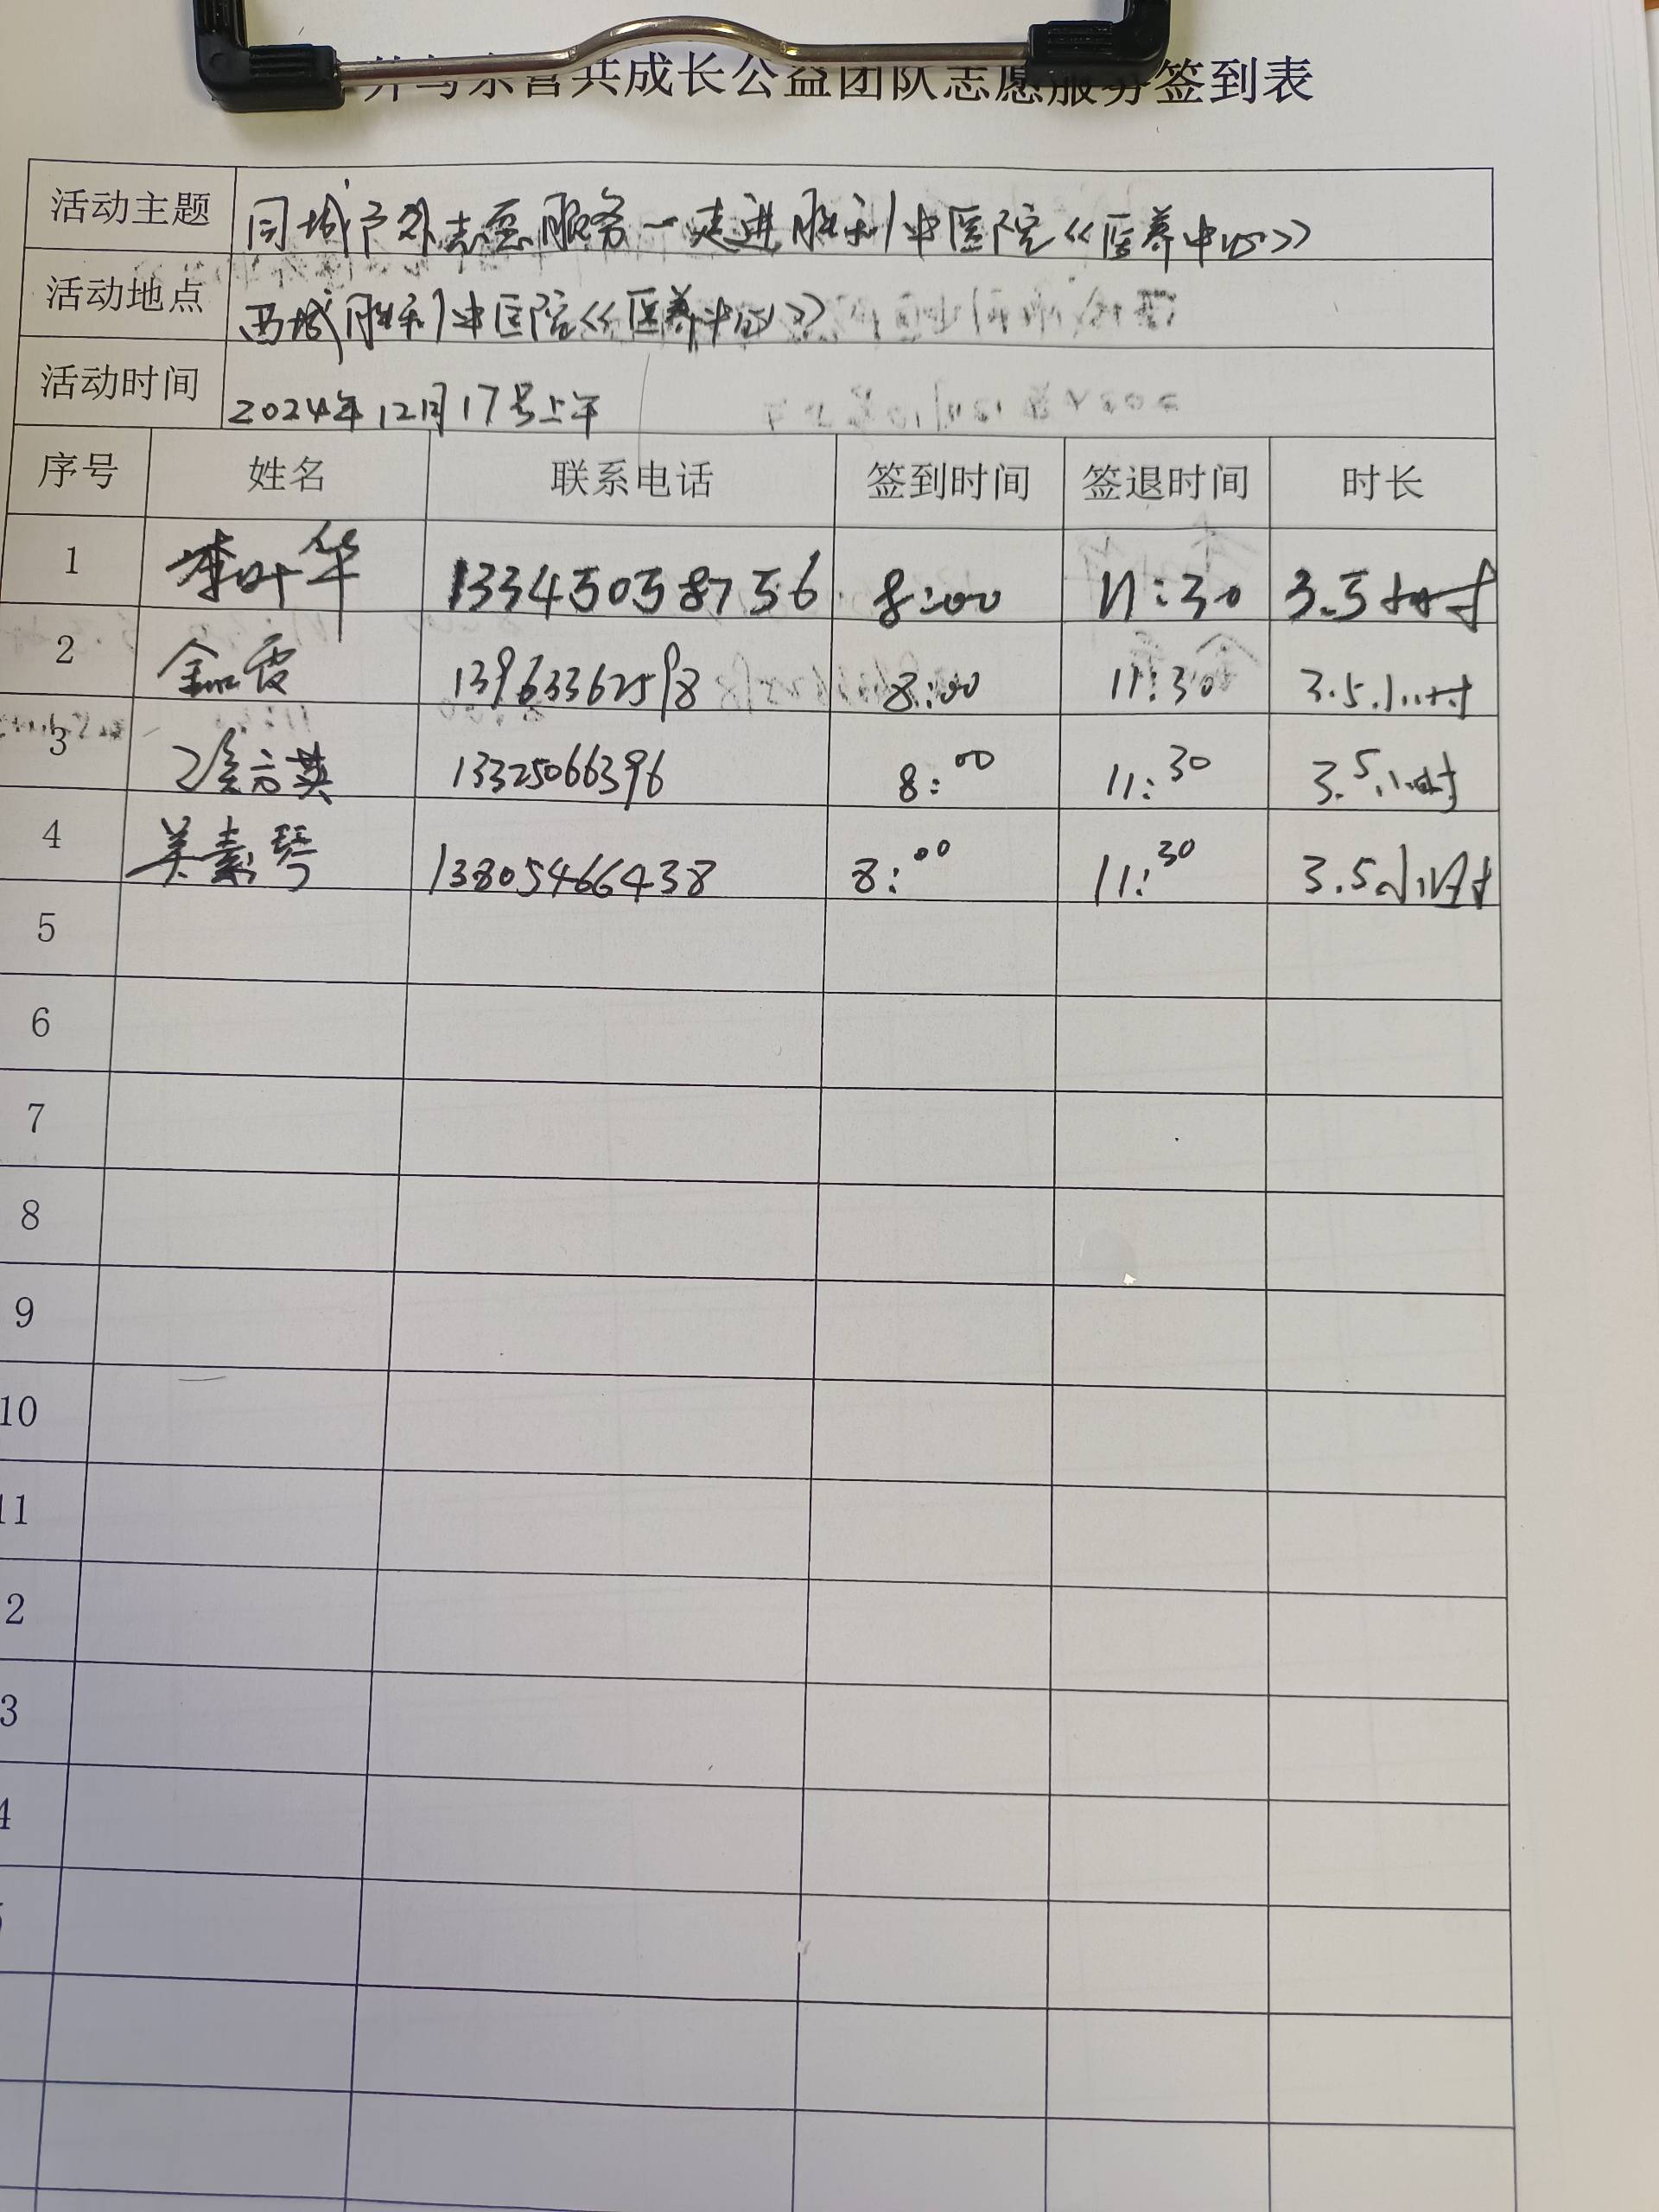 共成长公益团队志愿服务签到表
活动主题 同城户外志愿服务一走进胜利中医院《医养中心》
活动地点 西城胜利中医院《医养中心》
活动时间 2024年12月17号上午
序号 姓名 联系电话 签到时间 签退时间 时长
1 李叶华 13345058756 8:00 11:30 3.5小时
2 金霞 13963362598 8:00 11:30 3.5小时
3 13325066396 8:00 11:30 3.5小时
4 吴素琴 13805466438 8:00 11:30 3.5小时
5
6
7
8
9
10
11
2
3
4